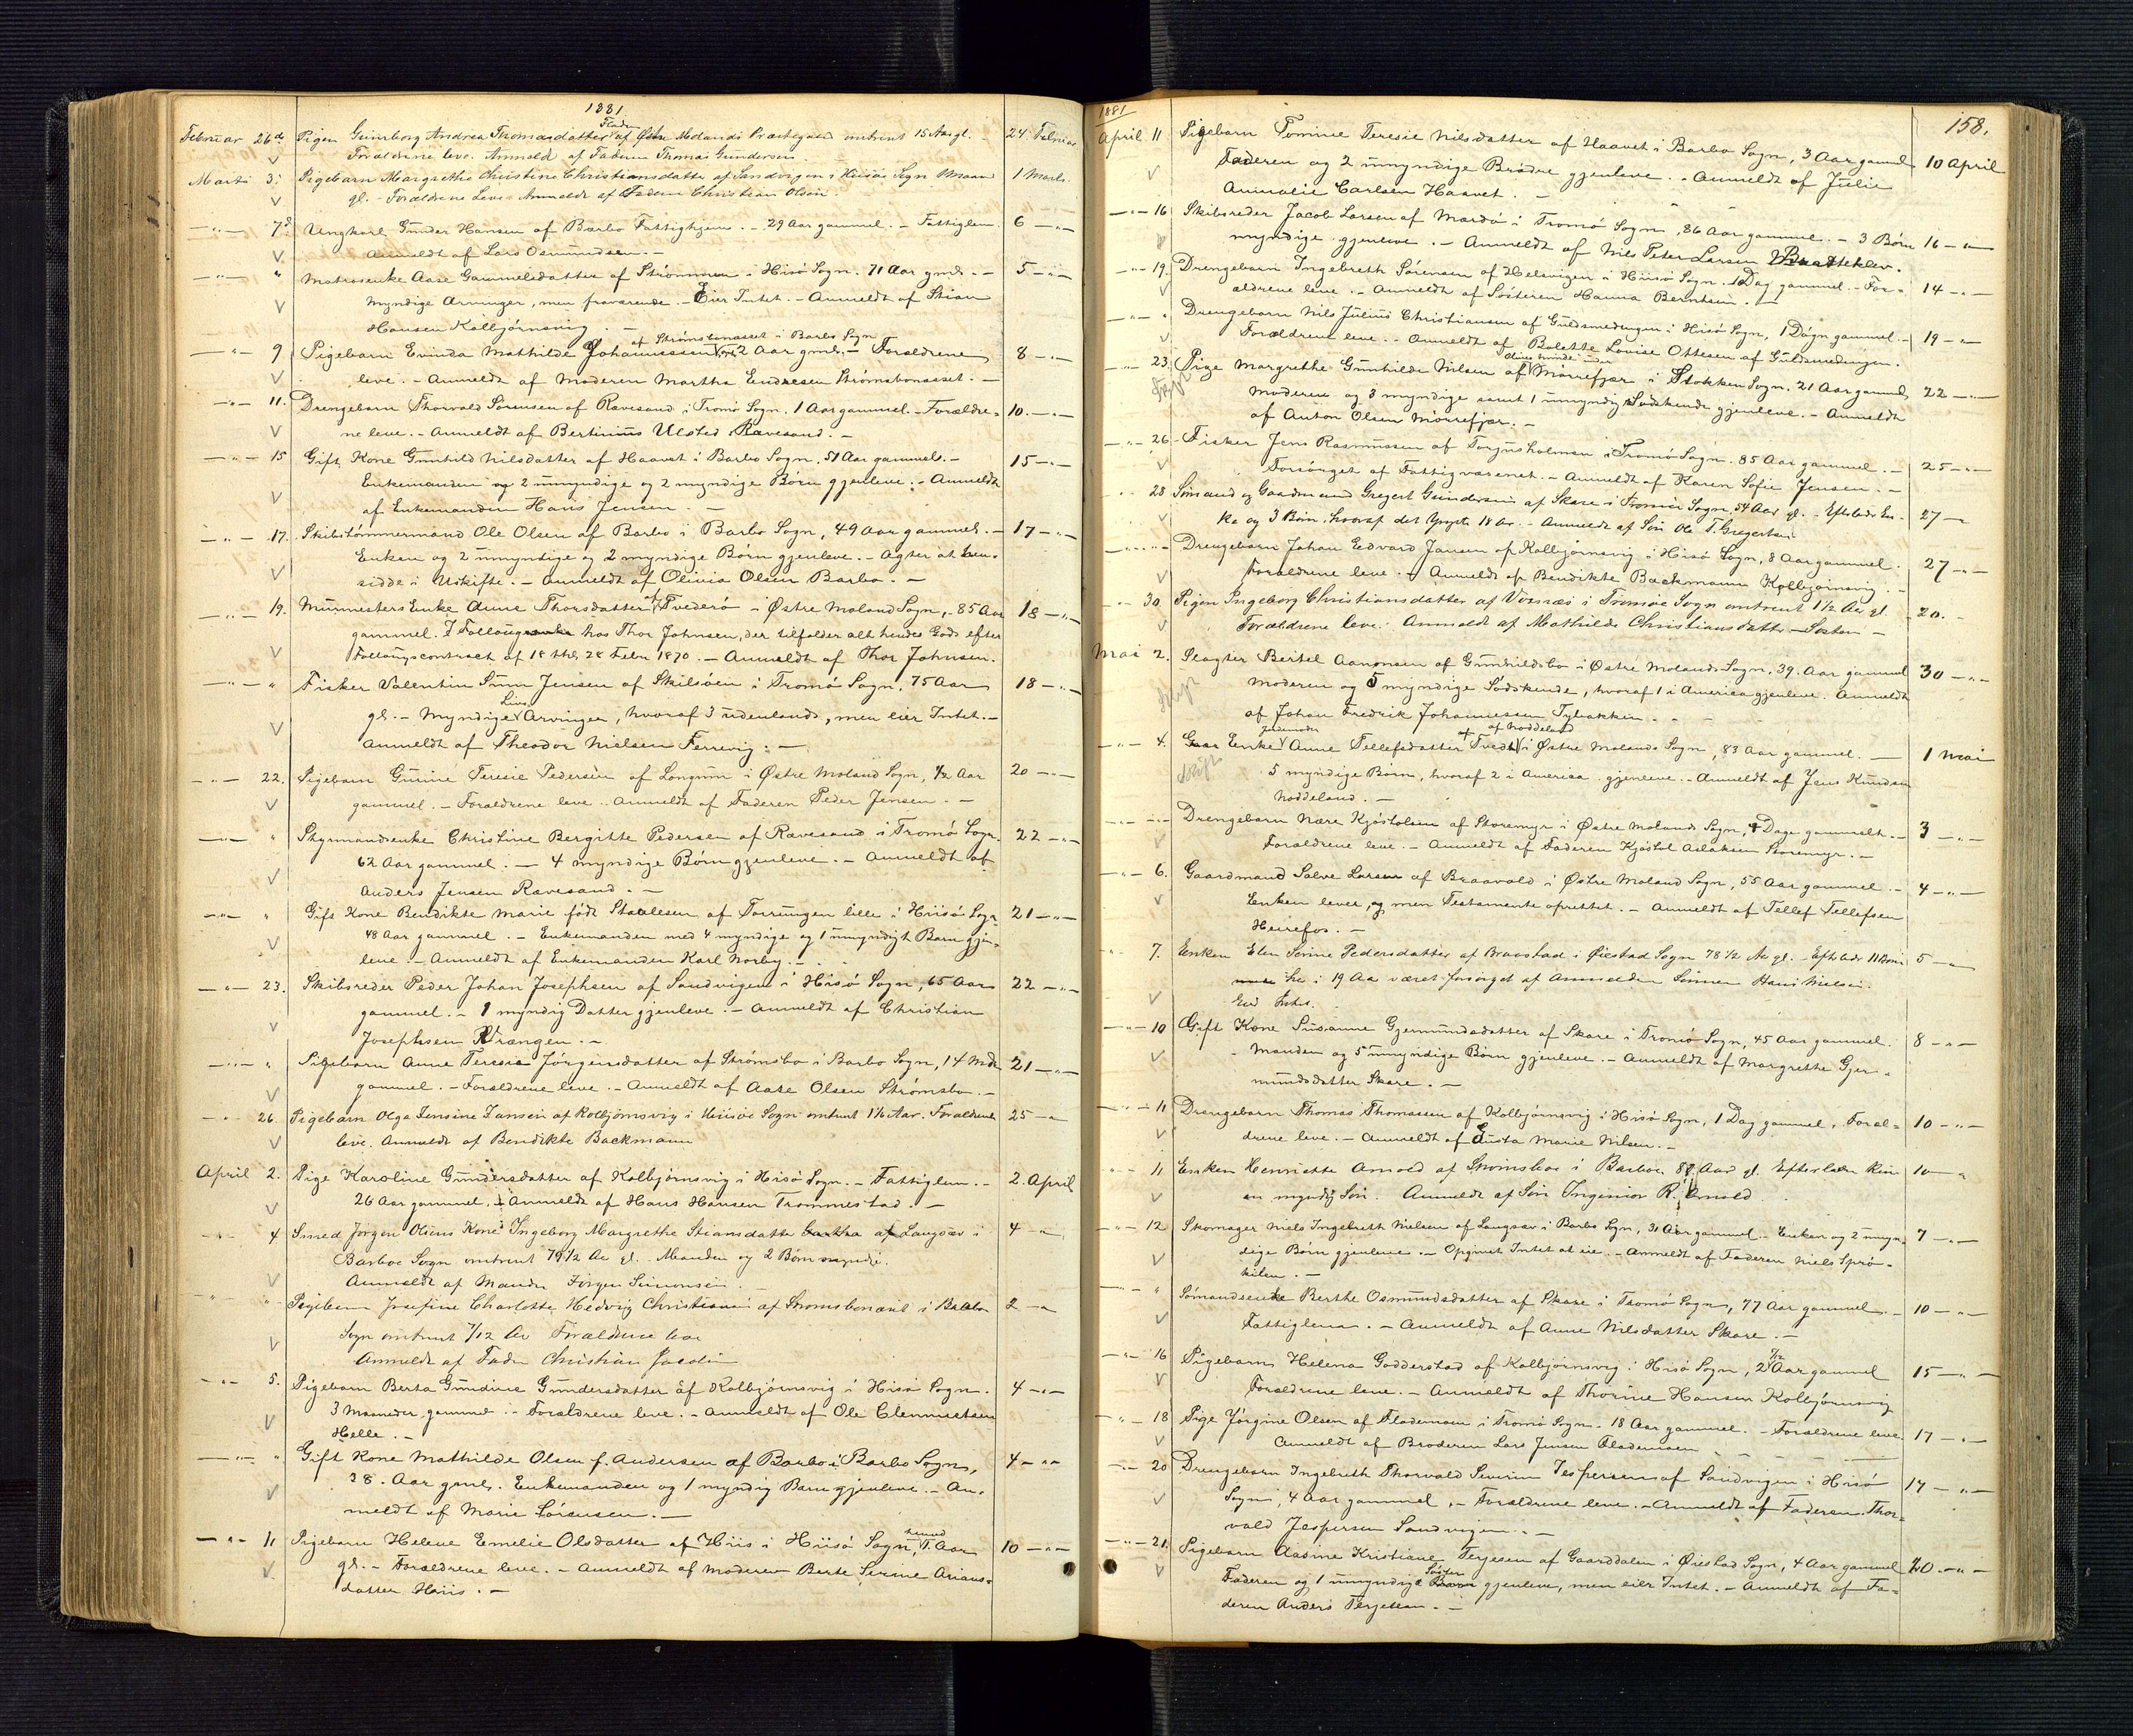 1881
Februar 26de Pigen Gunborg Andrea Thomasdatter af Østre Molands Præstegaard omtrent 15 Aar gl. 24 Februar
Forældrene leve. Anmeldt af Faderen Thomas Gundersen.
Marts 3. Pigebarn Margrethe Christine Christiansdatter af Sandvigen i Hisø Sogn 1 Marts
gl. - Forældrene Leve - Anmeldt af Faderen Christian Olsen
—„— 7de Ungkarl Gunder Hansen af Barbo Fattighjem. - 29 Aar gammel. - Fattiglem. 6 —„—
Anmeldt af Lars Osmundsen. -
—„— „ Matrosenke Aase Gammelsdatter af Strømmen i Hisø Sogn. 71 Aar gml. - 5 —„—
Myndige Arvinger, men fraværende. - Eier Intet. - Anmeldt af Stian
Hansen Kolbjørnsvig. -
af Strømsbonæsset i Barbo Sogn
—„— 9 Pigebarn Evinda Mathilde Johannessen 2 Aar gml. - Forældrene 8 —„—
leve. - Anmeldt af Moderen Martha Endresen Strømsbonæsset. -
—„— 11. Drengebarn Thorvald Sørensen af Ravesand i Tromø Sogn. 1 Aar gammel. - Forældre- 10. —„—
ne leve. - Anmeldt af Bertinius Ulsted Ravesand. -
—„— 15 Gift Kone Gunhild Nilsdatter af Haavet i Barbo Sogn. 51 Aar gammel. - 15 —„—
Enkemanden og 2 umyndige og 2 myndige Børn gjenleve. - Anmeldt
af Enkemanden Hans Jensen. -
—„— 17. Skibstømmermand Ole Olsen af Barbo i Barbo Sogn, 49 Aar gammel. - 17 —„—
Enken og 2 umyndige og 2 myndige Børn gjenleve. - Agter at hen-
sidde i Uskifte. - Anmeldt af Olivia Olsen Barbo. -
—„— 19. Murmesters Enke Anne Thorsdatter af Tvederø i Østre Moland Sogn, - 85 Aar 18 —„—
gammel. I Følloug hos Thor Johnsen, der tilfalder alt hendes Gods efter
Føllougscontract af 18 thl 28 Febr 1870. - Anmeldt af Thor Johnsen.
—„— „ Fisker Valentin Sum Jensen af Skilsøen i Tromø Sogn, 75 Aar 18 —„—
gl. - Myndige Livs Arvinger, hvoraf 3 udenlands, men eier Intet. -
Anmeldt af Theodor Nielsen Færevig. -
—„— 22. Pigebarn Gunine Teresie Pedersen af Longum i Østre Moland Sogn, 1/2 Aar 20 —„—
gammel. - Forældrene leve. - Anmeldt af Faderen Peder Jensen. -
—„— „ Styrmandsenke Christine Bergitte Pedersen af Ravesand i Tromø Sogn. 22 —„—
62 Aar gammel. - 4 myndige Børn gjenleve. - Anmeldt af
Anders Jensen Ravesand. -
—„— „ Gift Kone Bendikte Marie født Staalesen af Torrungen lille i Hisø Sogn 21 —„—
48 Aar gammel. - Enkemanden med 4 myndige og 1 umyndigt Barn gjen-
leve. - Anmeldt af Enkemanden Karl Norby. -
—„— 23. Skibsreder Peder Johan Josephsen af Sandvigen i Hisø Sogn, 65 Aar 22 —„—
gammel. - 1 myndig Datter gjenleve. - Anmeldt af Christian
Josephsen Vrængen. -
—„— „ Pigebarn Anne Teresie Jørgensdatter af Strømsbo i Barbo Sogn, 14 Mdr 21 —„—
gammel. - Forældrene leve. - Anmeldt af Aase Olsen Strømsbo. -
—„— 26. Pigebarn Olga Jensine Jansen af Kolbjørnsvig i Hisøe Sogn omtrent 1 1/2 Aar. Forældrene 25 —„—
leve. Anmeldt af Bendikte Backmann
April 2. Pige Karoline Gundersdatter af Kolbjørnsvig i Hisø Sogn. - Fattiglem. - 2. April
26 Aar gammel. - Anmeldt af Hans Hansen Trommestad. -
—„— 4 Smed Jørgen Olsens Kone Ingeborg Margrethe Stiansdatter af Langsæv i 4 —„—
Barboe Sogn omtrent 79 1/2 Aar gl. Manden og 2 Børn myndi.
Anmeldt af Manden Jørgen Simonsen
—„— „ Pigebarn Josefine Charlotte Hedvig Christiane af Strømsbonæset i Barbo 2 —„—
Sogn omtrent 7/12 Aar Forældrene leve
Anmeldt af Fader Christian Jacobsen
—„— 5. Pigebarn Berta Gundine Gundersdatter af Kolbjørnsvig i Hisø Sogn. 4 —„—
3 Maaneder gammel. - Forældrene leve. - Anmeldt af Ole Clemmetsen
Helle. -
—„— „ Gift Kone Mathilde Olsen f. Andersen af Barbo i Barbo Sogn, 4 —„—
38. Aar gml. Enkemanden og 1 myndig Barn gjenleve. - An-
meldt af Marie Sørensen. -
—„— 11 Pigebarn Helene Emelie Olsdatter af Hiis i Hisø Sogn, 1. Aar 10 —„—
gl. - Forældrene leve. - Anmeldt af Moderen Berte Serine Arians-
datter Hiis. -
158.
1881
April 11 Pigebarn Tomine Teresie Nilsdatter af Haavet i Barbo Sogn, 3 Aar gammel 10 April
Faderen og 2 umyndige Brødre gjenleve. - Anmeldt af Julie
Annalie Carlsen Haavet. -
—„— 16 Skibsreder Jacob Larsen af Mærdø i Tromø Sogn, 86 Aar gammel. - 3 Børn 16 —„—
myndige gjenleve. - Anmeldt af Nils Peter Larsen Bratteklev.
—„— 19. Drengebarn Ingebreth Sørensen af Helsvigen i Hisø Sogn. 1 Dag gammel. - For- 14 —„—
ældrene leve. - Anmeldt af Søsteren Hanna Berntsen. -
—„— „ Drengebarn Nils Julius Christiansen af Guldsmedengen i Hisø Sogn, 1 Døgn gammel. - 19 —„—
Forældrene leve. - Anmeldt af Bolette Lovise Ottesen af Guldsmedengen.
—„— 23. Pige Margrethe Gunhilde Nilsen af Mørrefjær i Stokken Sogn. 21 Aar gammel, 22 —„—
Skift Moderen og 3 myndige samt 1 umyndig Sødskende gjenleve. - Anmeldt
af Anton Olsen Mørrefjær. -
—„— 26. Fisker Jens Rasmussen af Torjusholmen i Tromø Sogn. 85 Aar gammel. - 25 —„—
Forsørget af Fattigvæsenet. - Anmeldt af Karen Sofie Jensen. -
„ 28 Sømand og Gaardmand Gregert Gundersen af Skare i Tromø Sogn, 54 Aar gl. - Efterlader En- 27 —„—
ke og 3 Børn, hvoraf det yngste 18 Ar. - Anmeldt af Søn Ole T. Gregertsen
—„— „ Drengebarn Johan Edvard Jansen af Kolbjørnsvig i Hisø Sogn, 8 Aar gammel. 27 —„—
Forældrene leve. - Anmeldt af Bendikte Backmann Kolbjørnsvig. -
—„— 30. Pigen Ingeborg Christiansdatter af Voxnæs i Tromøe Sogn omtrent 1 1/2 Aar gl. 20. -
Forældrene leve. Anmeldt af Mathilde Christiansdatter - Søster -
Mai 2. Slagter Bertel Aanonsen af Gunhildsbo i Østre Molands Sogn. 39. Aar gammel 30 —„—
Skift Moderen og 5 myndige Sødskende, hvoraf 1 i America gjenleve. Anmeldt
af Johan Fredrik Johannessen Tybakken. -
Jordemoder af Noddeland
—„— 4. Enke Anne Tellefsdatter Tvedt i Østre Molands Sogn, 83 Aar gammel. - 1 Mai
Skift 5 myndige Børn, hvoraf 2 i America gjenleve. - Anmeldt af Jens Knudsen
Noddeland. -
—„— „ Drengebarn Nære Kjøstolsen af Storemyr i Østre Molands Sogn, 4 Dage gammelt. - 3 —„—
Forældrene leve. - Anmeldt af Faderen Kjøstol Aslaksen Storemyr. -
—„— 6. Gaardmand Salve Larsen af Braavold i Østre Moland Sogn, 55 Aar gammel. - 4 —„—
Enken lever, og men Testamente oprettet. - Anmeldt af Tellef Tellefsen
Heirefos. -
„ 7. Enken Elen Serine Pedersdatter af Braastad i Øiestad Sogn 78 1/2 Aar gl. - Efterlader 11 Børn 5 —„—
har i 19 Aar været forsørget af Anmelderen Sønnen Hans Nielsen.
Eier Intet.
—„— 10 Gift Kone Susanne Gjermundsdatter af Skare i Tromø Sogn, 45 Aar gammel. 8 —„—
- Manden og 5 umyndige Børn gjenleve. - Anmeldt af Margrethe Gjer-
mundsdatter Skare. -
—„— 11 Drengebarn Thomas Thomassen af Kolbjørnsvig i Hisø Sogn, 1 Dag gammel. Foræl- 10 —„—
drene leve. - Anmeldt af Gusta Marie Nilsen. -
—„— 11 Enken Henriette Arnold af Strømsboe i Barboe 87 Aar gl. Efterlader kun 10 — „
en myndig Søn. Anmeldt af Søn Ingeniør R. Arnold
—„— 12 Skomager Niels Ingebreth Nielsen af Langsæv i Barbo Sogn, 31 Aar gammel. - Enken og 2 umyn- 7 —„—
dige Børn gjenleve. - Opgivet Intet at eie. - Anmeldt af Faderen Niels Sprø-
kilen. -
—„— „ Sømandsenke Berthe Osmundsdatter af Skare i Tromø Sogn, 77 Aar gammel. - 10 —„—
Fattiglem. - Anmeldt af Anne Nilsdatter Skare. -
—„— 16 Pigebarn Helena Godderstad af Kolbjørnsvig i Hisø Sogn, 2 7/12 Aar gammel 15 —„—
Forældrene leve. - Anmeldt af Thorine Hansen Kolbjørnsvig
—„— 18 Pige Jørgine Olsen af Flademoen i Tromø Sogn. 18 Aar gammel. - Forældrene leve. 17 —„—
Anmeldt af Broderen Lars Jensen Flademoen
—„— 20 Drengebarn Ingebreth Thorvald Severin Jespersen af Sandvigen i Hisø 17 —„—
Sogn, 4 Aar gammel. - Forældrene leve. - Anmeldt af Faderen Thor-
vald Jespersen Sandvigen. -
—„— 21. Pigebarn Aasine Kristiane Terjesen af Gaarddalen i Øiestad Sogn, 4 Aar gammel 20. —„—
Faderen og 1 umyndige Søster gjenleve, men eier Intet. - Anmeldt af Fa-
deren Anders Terjesen. -